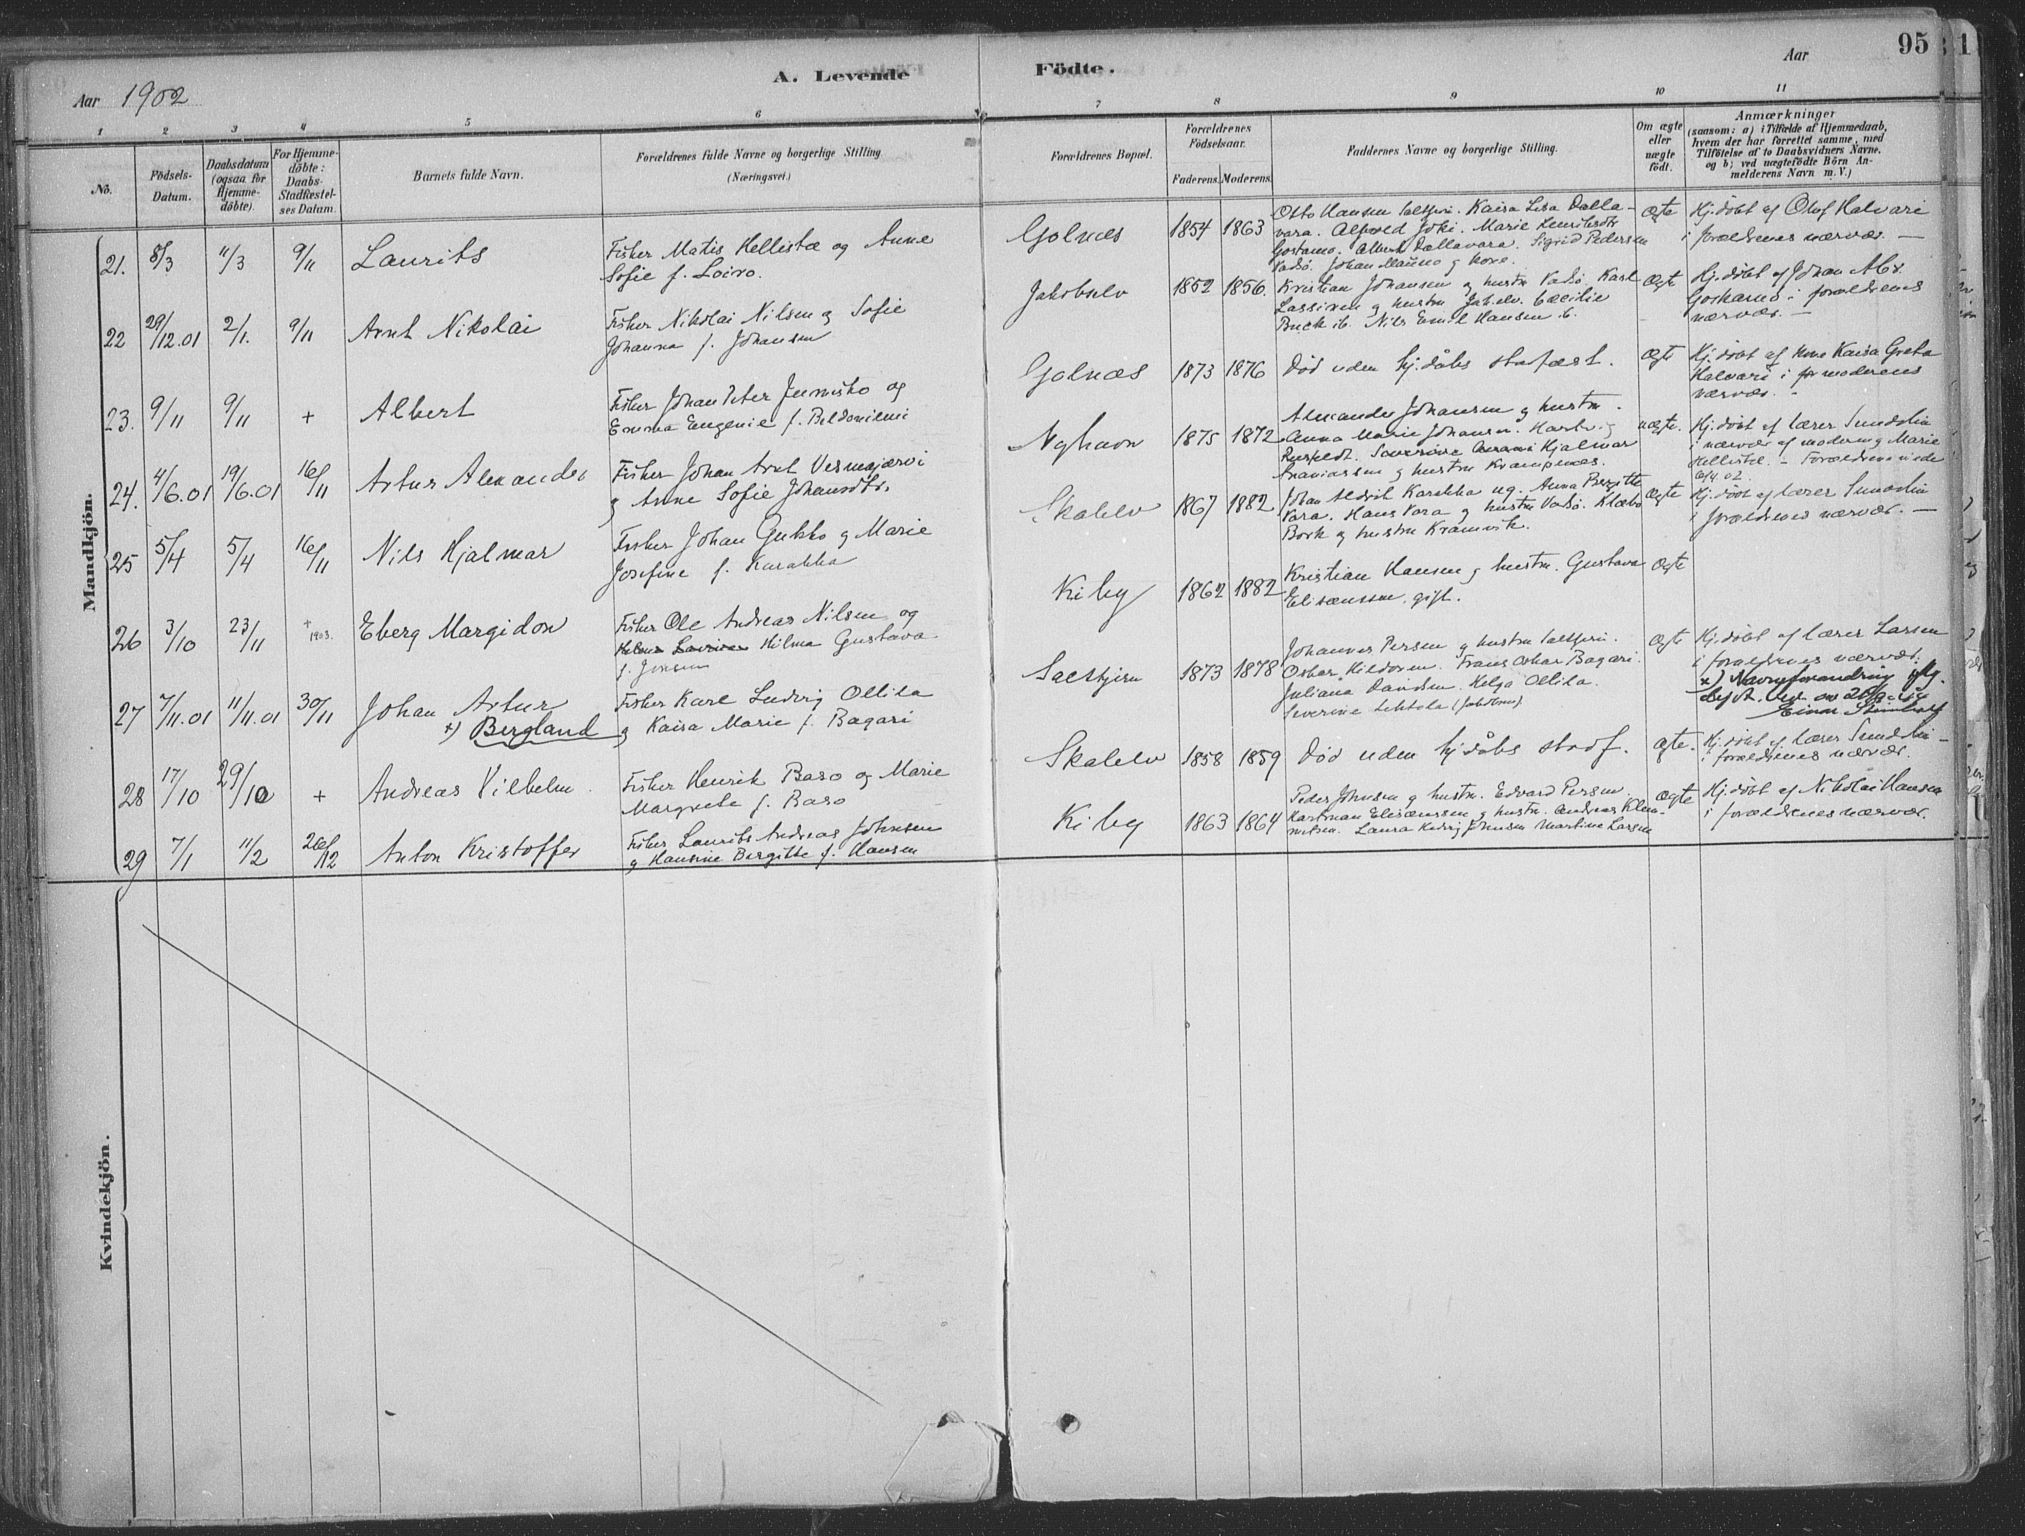 95
Aar 1902
A. Levende Födte.
Aar
1 2 3 4 5 6 7 8 9 10 11
No.
Födsels-
Datum.
Daabsdatum
(ogsaa for
Hjemme-
döbte).
For Hjemme-
döbte:
Daabs-
Stadfæstel-
ses Datum.
Barnets fulde Navn.
Forældrenes fulde Navne og borgerlige Stilling
(Næringsvei.)
Forældrenes Bopæl.
Forældrenes
Födselsaar.
Faderens. Moderens.
Faddernes Navne og borgerlige Stilling.
Om ægte
eller
uægte
födt.
Anmærkninger
(saasom: a) i Tilfælde af Hjemmedaab,
hvem der har forrettet samme, med
Tilföielse af to Daabsvidners Navne.
og b; ved uægtefödte Börn An-
melderens Navn m. V.)
Mandkjön.
21. 8/3 11/3 9/11 Laurits
Fisker Matis Hellistæ og Anne
Sofie f. Loivo.
Golnæs 1854 1863
Otto Hansen Kaisa Lisa Dalla-
vara. Alfred Joki. Marie
Albert Dallavara. Sigrid Pedersen
Vadsö. Johan Mauno og kone.
ægte
Hj.döbt af Olof Halvari
i forældrenes nærvær. —
22 29/12.01 2/1. 9/11 Arnt Nikolai
Fisker Nikolai Nilsen og Sofie
Johanna f. Johansen
Jakobselv 1852 1856.
Kristian Johansen og hustru Vadsö Karl
Lassinen og hustru Jak.elv. Cecilie
Buck ib. Nils Emil Hansen ib.
ægte
Hj.döbt af Johan Abr.
i forældrenes
nærvær. —
23. 9/11 9/11 + Albert
Fisker Johan Peter Junnisko og
Emma Eugenie f. Beldoniemi
Golnæs 1873 1876
Död uden hj.dåbs stadfæst.
ægte
Hj.döbt af kone Kaisa Greta
Halvari i moderens
nærvær. -
24. 4/6.01 19/6.01 16/11 Artur Alexander
Fisker Johan Arnt Vesmajærvi
og Anne Sofie Johansdtr.
Nyhavn 1875 1872
Alexander Johansen og hustru.
Anna Marie Johansen.
Hjalmar
Ananiassen og hustru Krampenæs.
uægte.
Hj.döbt af lærer Sundelin
i nærvær af moderen og Marie
Hellistæ. – Forældrene
25 5/4 5/4 16/11 Nils Hjalmar
Fisker Johan Gukko og Marie
Josefine f. Karakka
Skalelv 1867 1882
Johan Karakka ug. Anna Bergitte
Vara. Hans Vara og hustru Vadsö. Klæbo
Bork og hustru Kramvik.
ægte
Hj.döbt af lærer Sundelin
i forældrenes nærvær. —
26 3/10 23/11 + 1903. Eberg Margidon
Fisker Ole Andreas Nilsen og
Hilma Gustava
f. Jensen
Kiby 1862 1882
Kristian Hansen og hustru. Gustava
Elisæussen. gift.
ægte
27 7/11.01 11/11.01 30/11 Johan Artur
x) Bergland
Fisker Karl Ludvig Ollila
og Kaisa Marie f. Bagari
Saltstjern 1873 1878
Johannes Persen og hustru
Oskar Kildoven. Frans Oskar Bagari.
Juliana Davidsen. Helga Ollila.
Severine Lehtola (Jakobsen)
ægte
Hj.döbt af lærer Larsen
i forældrenes nærvær.
x) Navneforandring iflg.
28 17/10 29/10 + Andreas Vilhelm.
Fisker Henrik Baso og Marie
Margrete f. Baso
Skalelv 1858 1859
Död uden hj.dåbs stadf.
ægte.
Hj.döbt af lærer Sundelin –
i forældrenes nærvær.
29 7/1 11/2 26/12 Anton Kristoffer
Fisker Laurits Andreas Johnsen
og Hansine Bergitte f. Hansen
Kiby 1863 1864
Peder Johnsen og hustru. Edvard Persen.
Hartman Elisæussen og hustru. Andreas Klem-
metsen. Laura Hedvig Johnsen Martine Larsen
ægte
Hj.döbt af Nikolai Hansen
i forældrenes nærvær.
Kvindekjön.